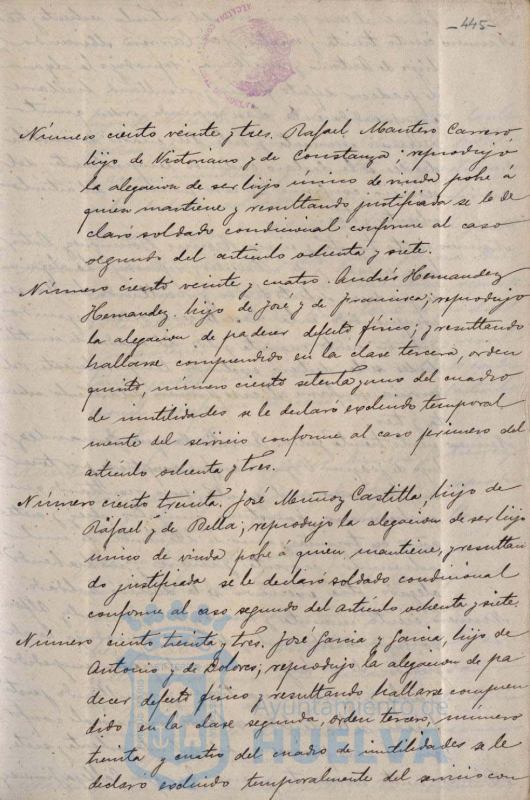 -445-
Número ciento veinte y tres. Rafael Mantero Carrero
hijo de Victoriano y de Constanza; reprodujo
la alegacion de ser hijo único de viuda pobre á
quien mantiene y resultando justificada se le de
claró soldado condicional conforme al caso
segundo del articulo ochenta y siete.
Número ciento veinte y cuatro. Andrés Hernandez
Hernandez. hijo de José y de Francisca; reprodujo
la alegacion de padecer defecto físico; y resultando
hallarse comprendido en la clase tercera, orden
quinto, número ciento setenta y uno del cuadro
de inutilidades se le declaró excluido temporal
mente del servicio conforme al caso primero del
artículo ochenta y tres.
Número ciento treinta. José Muñoz Castilla, hijo de
Rafael y de Bella; reprodujo la alegacion de ser hijo
único de viuda pobre á quien mantiene, y resultan
do justificada se le declaró soldado condicional
conforme al caso segundo del artículo ochenta y siete.
Número ciento treinta y tres. José Garcia y Garcia, hijo de
Antonio y de Dolores; reprodujo la alegacion de pa
decer defecto fisico y resultando hallarse compren
dido en la clase segunda, orden tercero, número
treinta y cuatro del cuadro de inutilidades se le
declaro excluido temporalmente del servicio con
Ayuntamiento de
HUELVA